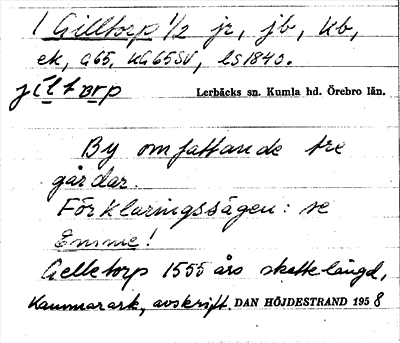 1 Gilltorp 1/2 jr, jb, kb,
ek, G65, KG65SV, ls1840.
jiltorp Lerbäcks sn. Kumla hd. Örebro län.
By omfattande tre
gårdar.
Förklaringssägen: se
Emme!
Gelletorp 1555 års skattelängd,
Kammarark., avskrift. DAN HÖJDESTRAND 1958